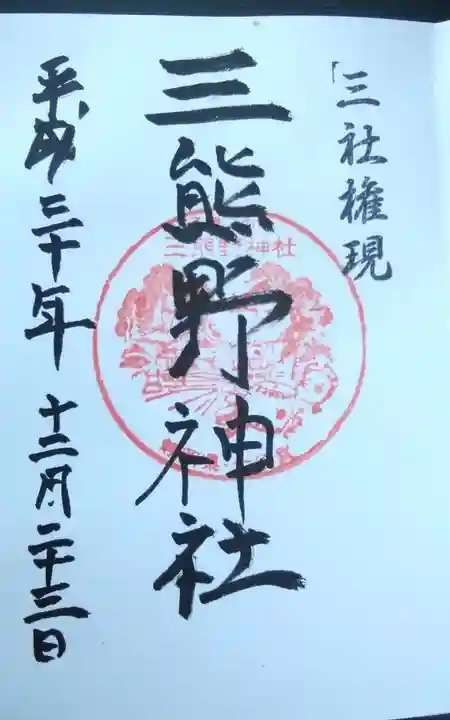 「三社権現
三熊野神社
三熊野神社
平成三十年 十二月二十三日